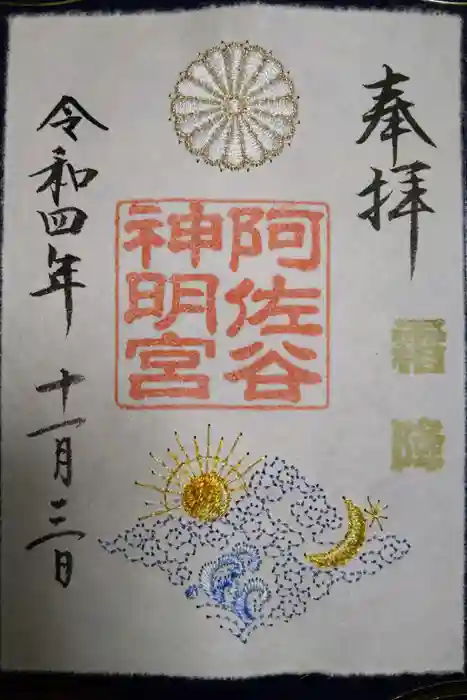 奉拝
霜降
阿佐谷
神明宮
令和四年 十一月三日